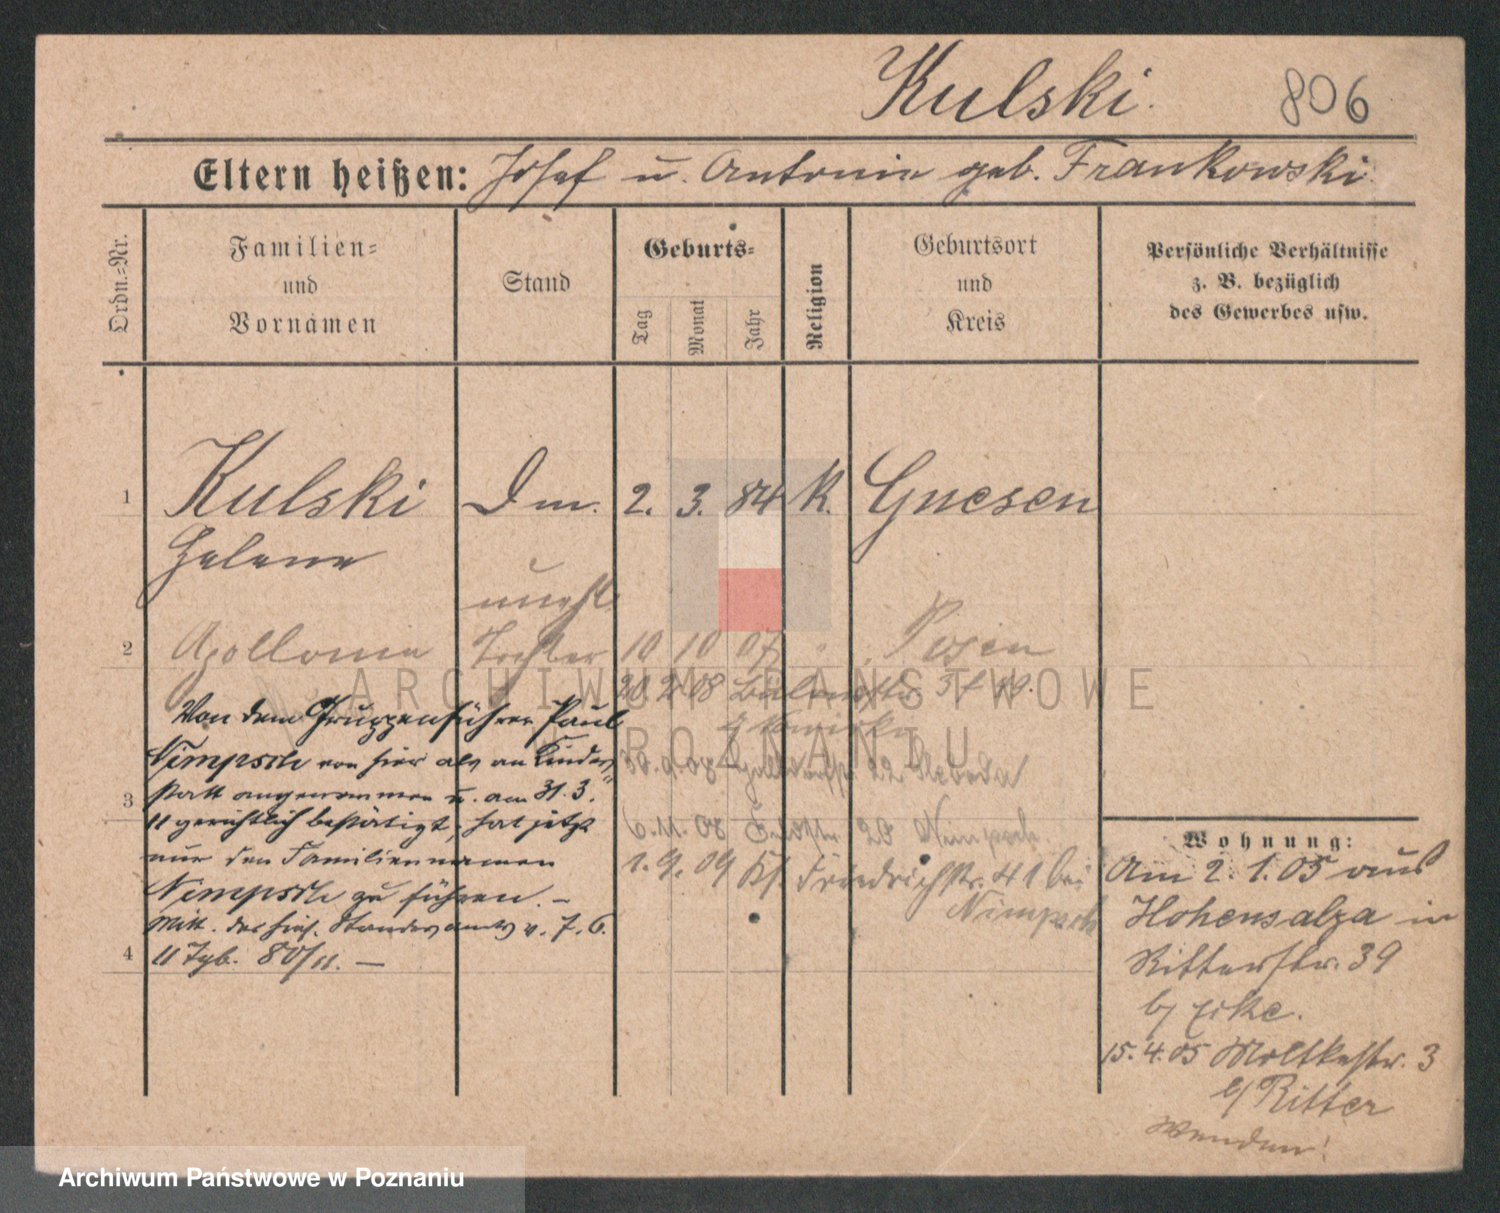 Kulski. 806
Eltern heißen: Josef u. Antonie geb. Frankowski.
Ordn.-Nr.
Familien-
und
Vornamen
Stand
Geburts-
Tag
Monat
Jahr
Religion
Geburtsort
und
Kreis
Persönliche Verhältnisse
z. B. bezüglich
des Gewerbes usw.
1 Kulski Dm. 2. 3. 84 K. Gnesen
Helene
unehl.
2 Apollonia Tochter 10 10 07 Posen
20 2. 08 37
Von dem Gruppenführer Paul
Nimpsch von hier als an Kindes
statt angenommen u. am 31.3.
3
11 gerichtlich bestätigt, hat jetzt
nur den Familiennamen
Nimpsch zu führen. –
Mitt. des hies. Standesamts v. 7. 6.
4
11 Tgb. 80/11. –
30. 9. 08 22
6. 11. 08 20 Nimpsch.
1. 9. 09 Friedrichstr. 41 bei
Nimpsch
Wohnung:
Am 2. 1. 05 aus
Hohensalza in
Ritterstr. 39
b/ Eike.
15. 4. 05 Moltkestr. 3
b/ Ritter
Wenden!
ARCHIWUM PAŃSTWOWE
W POZNANIU
Archiwum Państwowe w Poznaniu